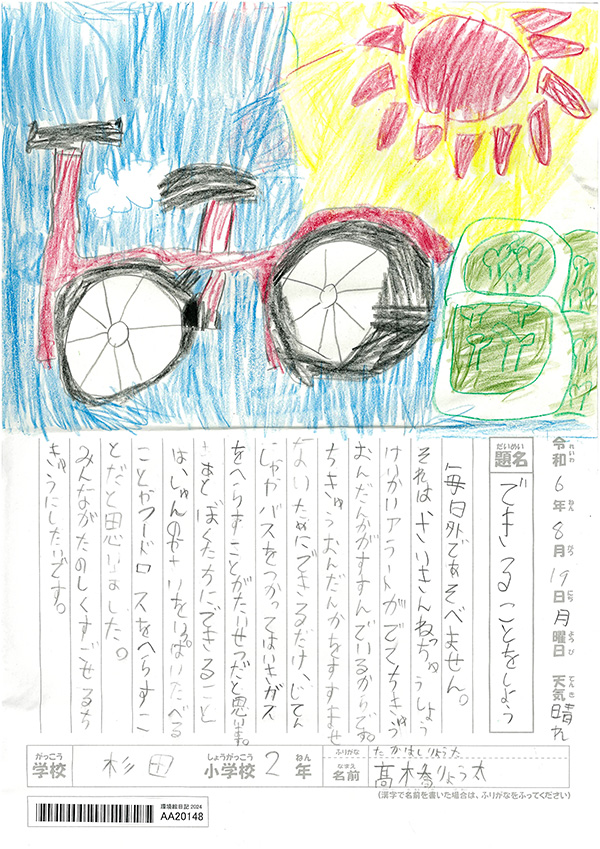 令和6年8月19日月曜日 天気晴れ
れいわ ねん がつ にち ようび てんき
だいめい
題名 できることをしよう
毎日外であそべません。
それは、さいきんねっちゅうしょう
けいかいアラートがでてちきゅう
おんだんかがすすんでいるからです。
ちきゅうおんだんかをすすませ
ないためにできるだけ、じてん
しゃやバスをつかってはいきガス
をへらすことがたいせつだと思います。
あとぼくたちにできること
は、
ことがフードロスをへらすこ
とだと思いました。
みんながたのしくすごせるち
きゅうにしたいです。
がっこう しょうがっこう ねん
学校 杉田 小学校 2年
ふりがな たかはしりょう太
なまえ
名前 髙橋りょう太
(漢字で名前を書いた場合は、ふりがなをふってください)
環境絵日記 2024
AA20148